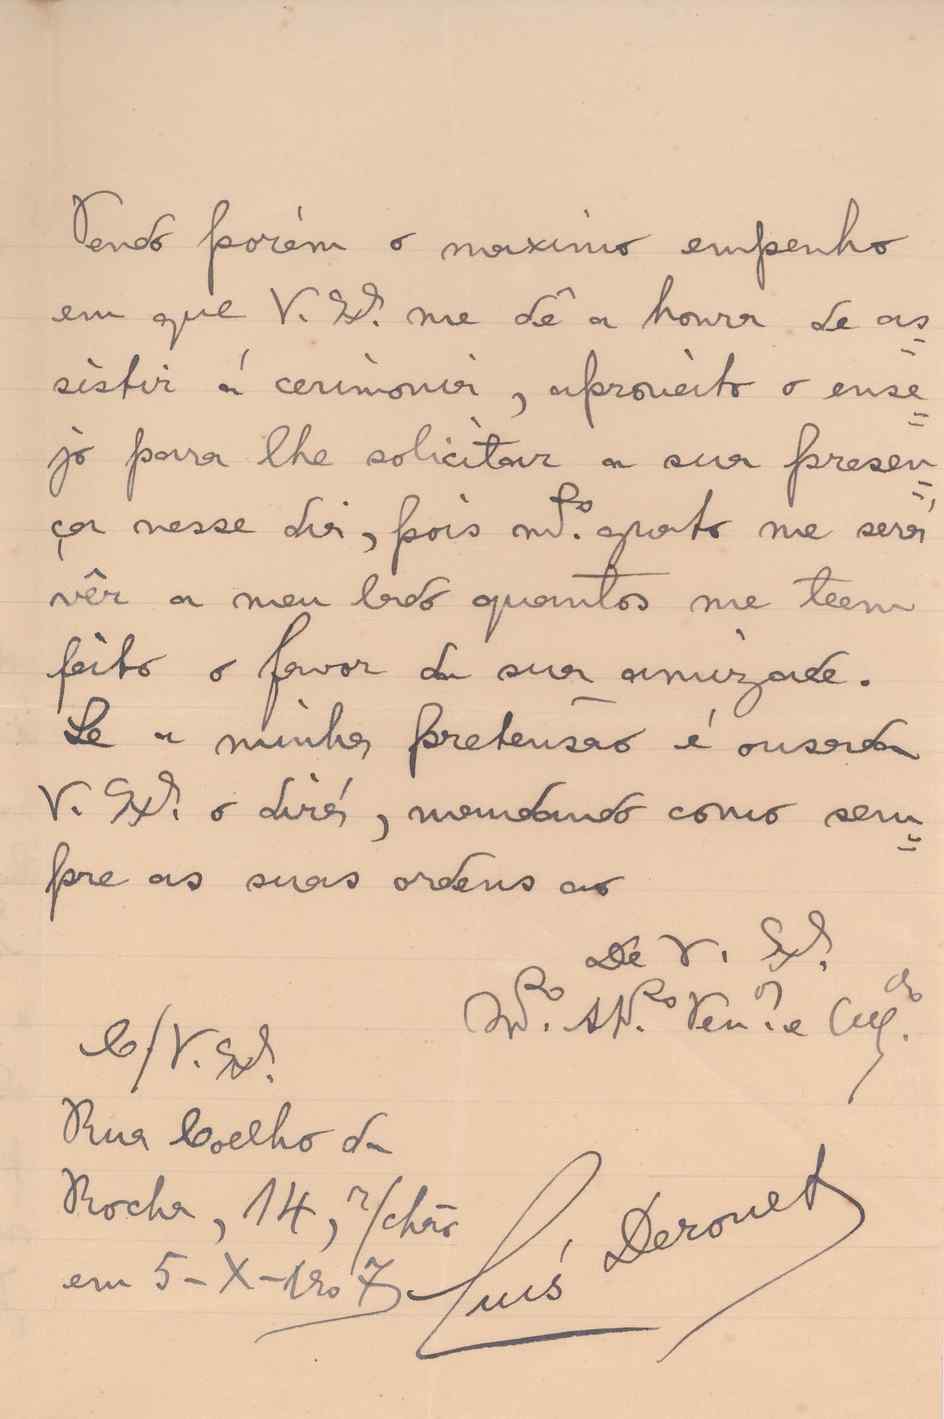 Tendo porém o maximo empenho
em que V. Ex.ª me dê a honra de as=
sistir á cerimonia, aproveito o ense=
jo para lhe solicitar a sua presen=
ça nesse dia, pois m.to grato me será
vêr a meu lado quantos me teem
feito o favor da sua amizade.
Se a minha pretensão é ousada
V. Ex.ª o dirá, mandando como sem=
pre as suas ordens ao
De V. Ex.ª
M.to At.to Ven.or e
C/V. Ex.ª
Rua Coelho da
Rocha, 14, r/chão
em 5-X-1907
Luís Derouet